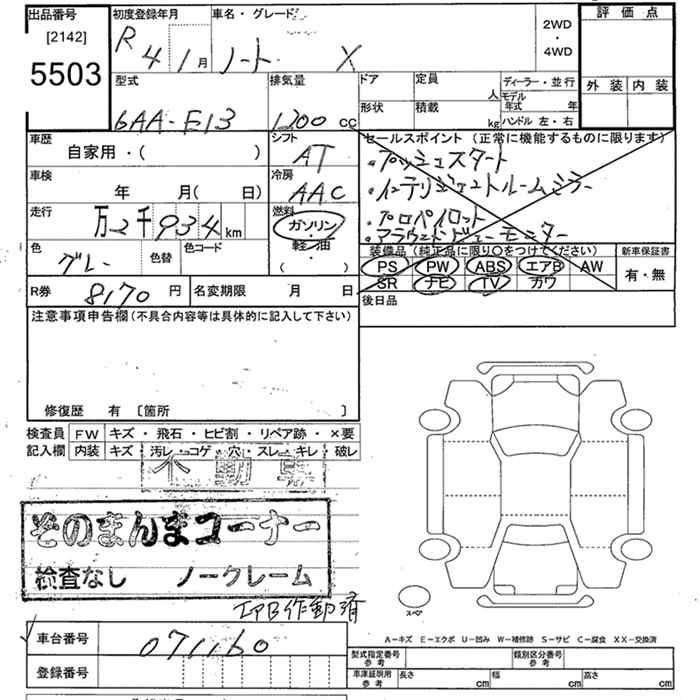 出品番号
[2142]
5503
初度登録年月
R 4 1月
車名・グレード
ノート X
2WD
・
4WD
評価点
外装 内装
型式
6AA-E13
排気量
1200cc
ドア
形状
定員 人
積載 kg
ディーラー・並行
モデル年式 年
ハンドル 左・右
車歴
自家用・( )
シフト
AT
車検
年 月( 日)
冷房
AAC
走行
万2千934km
燃料
ガソリン
軽油
( )
色
グレー
色替
色コード
セールスポイント(正常に機能するものに限ります)
・プッシュスタート
・インテリジェントルームミラー
・プロパイロット
・アラウンドビューモニター
装備品(純正品に限り○をつけてください)
PS PW ABS エアB AW
SR ナビ TV カワ
新車保証書
有・無
R券 8170円
名変期限 月 日
後日品
注意事項申告欄(不具合内容等は具体的に記入して下さい)
修復歴 有 [箇所 ]
検査員 FW キズ・飛石・ヒビ割・リペア跡・×要
記入欄 内装 キズ・汚レ・コゲ・穴・スレ・キレ・破レ
不動車
そのまんまコーナー
検査なし ノークレーム
エアB作動済
スペア
車台番号 071160
登録番号
A-キズ E-エクボ U-凹み W-補修跡 S-サビ C-腐食 XX-交換済
型式指定番号 参考
類別区分番号 参考
車庫証明用 参考
長さ cm
幅 cm
高さ cm